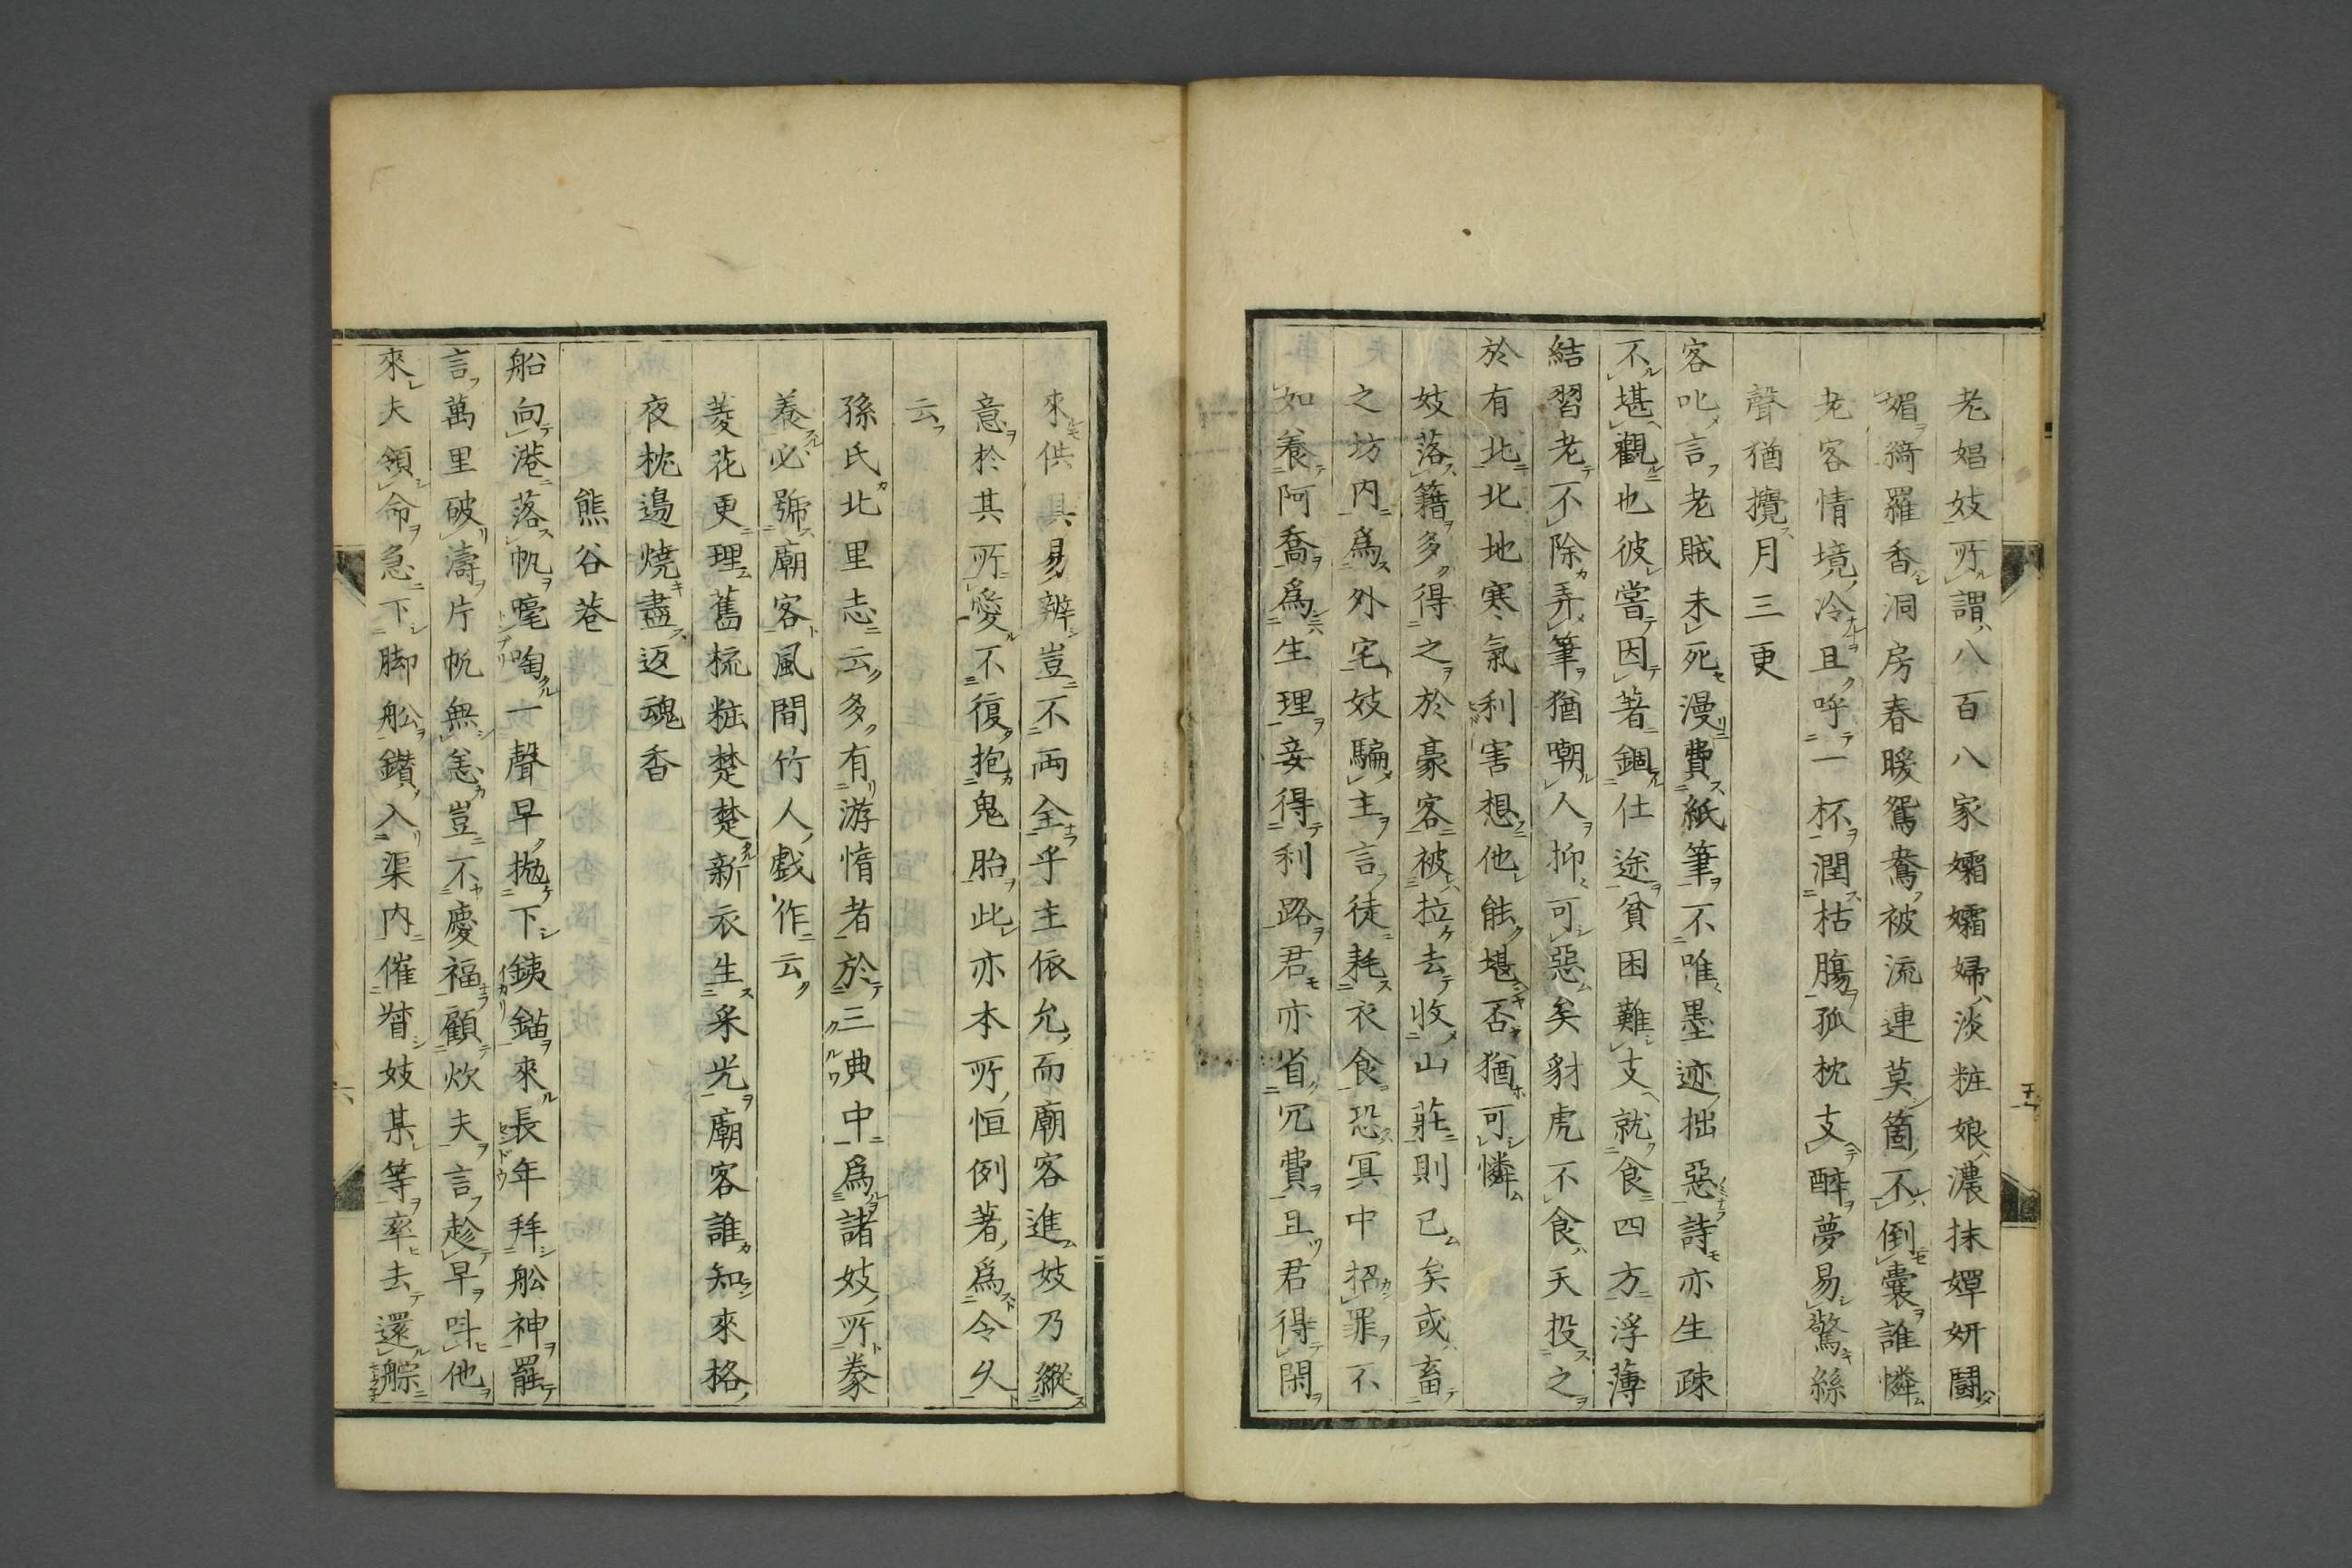 老娼妓所謂八百八家孀孀婦淡粧娘濃抹嬋妍鬪
媚綺羅香洞房春暖鴛鴦被流連莫箇不倒囊誰憐
老客情境冷且呼一杯潤枯腸孤枕支醉夢易驚絲
聲猶攪月三更
客叱言老賊未死漫費紙筆不唯墨迹拙惡詩亦生疎
不堪觀也彼嘗因著錮仕途貧困難支就食四方浮薄
結習老不除弄筆猶嘲人抑可惡矣豺虎不食天投之
於有北北地寒氣利害想他能堪否猶可憐
妓落籍多得之於豪客被拉去收山莊則已矣或畜
之坊内爲外宅妓騙主言徒耗衣食恐冥中招罪不
如養阿喬爲生理妾得利路君亦省冗費且君得閑
來供具易辨豈不両全乎主依允而廟客進妓乃縱
意於其所愛不復抱鬼胎此亦本所恒例著爲令久
云
孫氏北里志云多有游惰者於三典中爲諸妓所豢
養必號廟客風間竹人戲作云
菱花更理舊梳粧楚楚新衣生采光廟客誰知來格
夜枕邊焼盡返魂香
熊谷菴
船向港落帆嚔啕一聲早拋下銕錨來長年拜舩神羅
言萬里破濤片帆無恙豈不慶福顧炊夫言趁早呌他
來夫領命急下脚舩鑚入渠内催督妓某等率去還艅